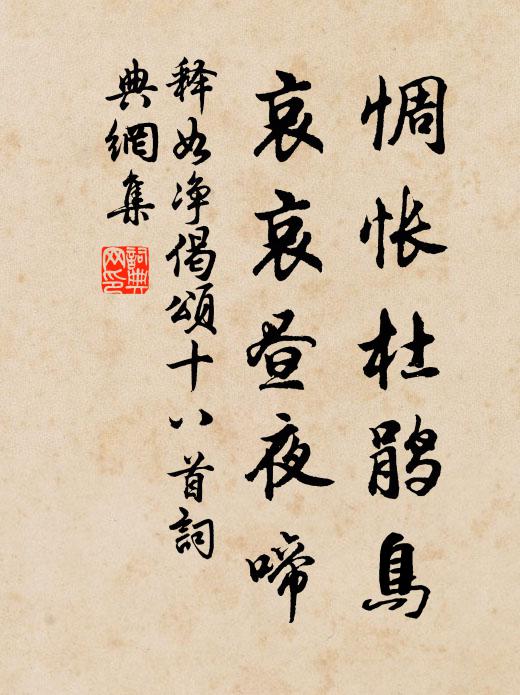 惆怅杜鹃鳥
哀哀昼夜啼
释如净偈頌十八首詞
典網集
詞典网印